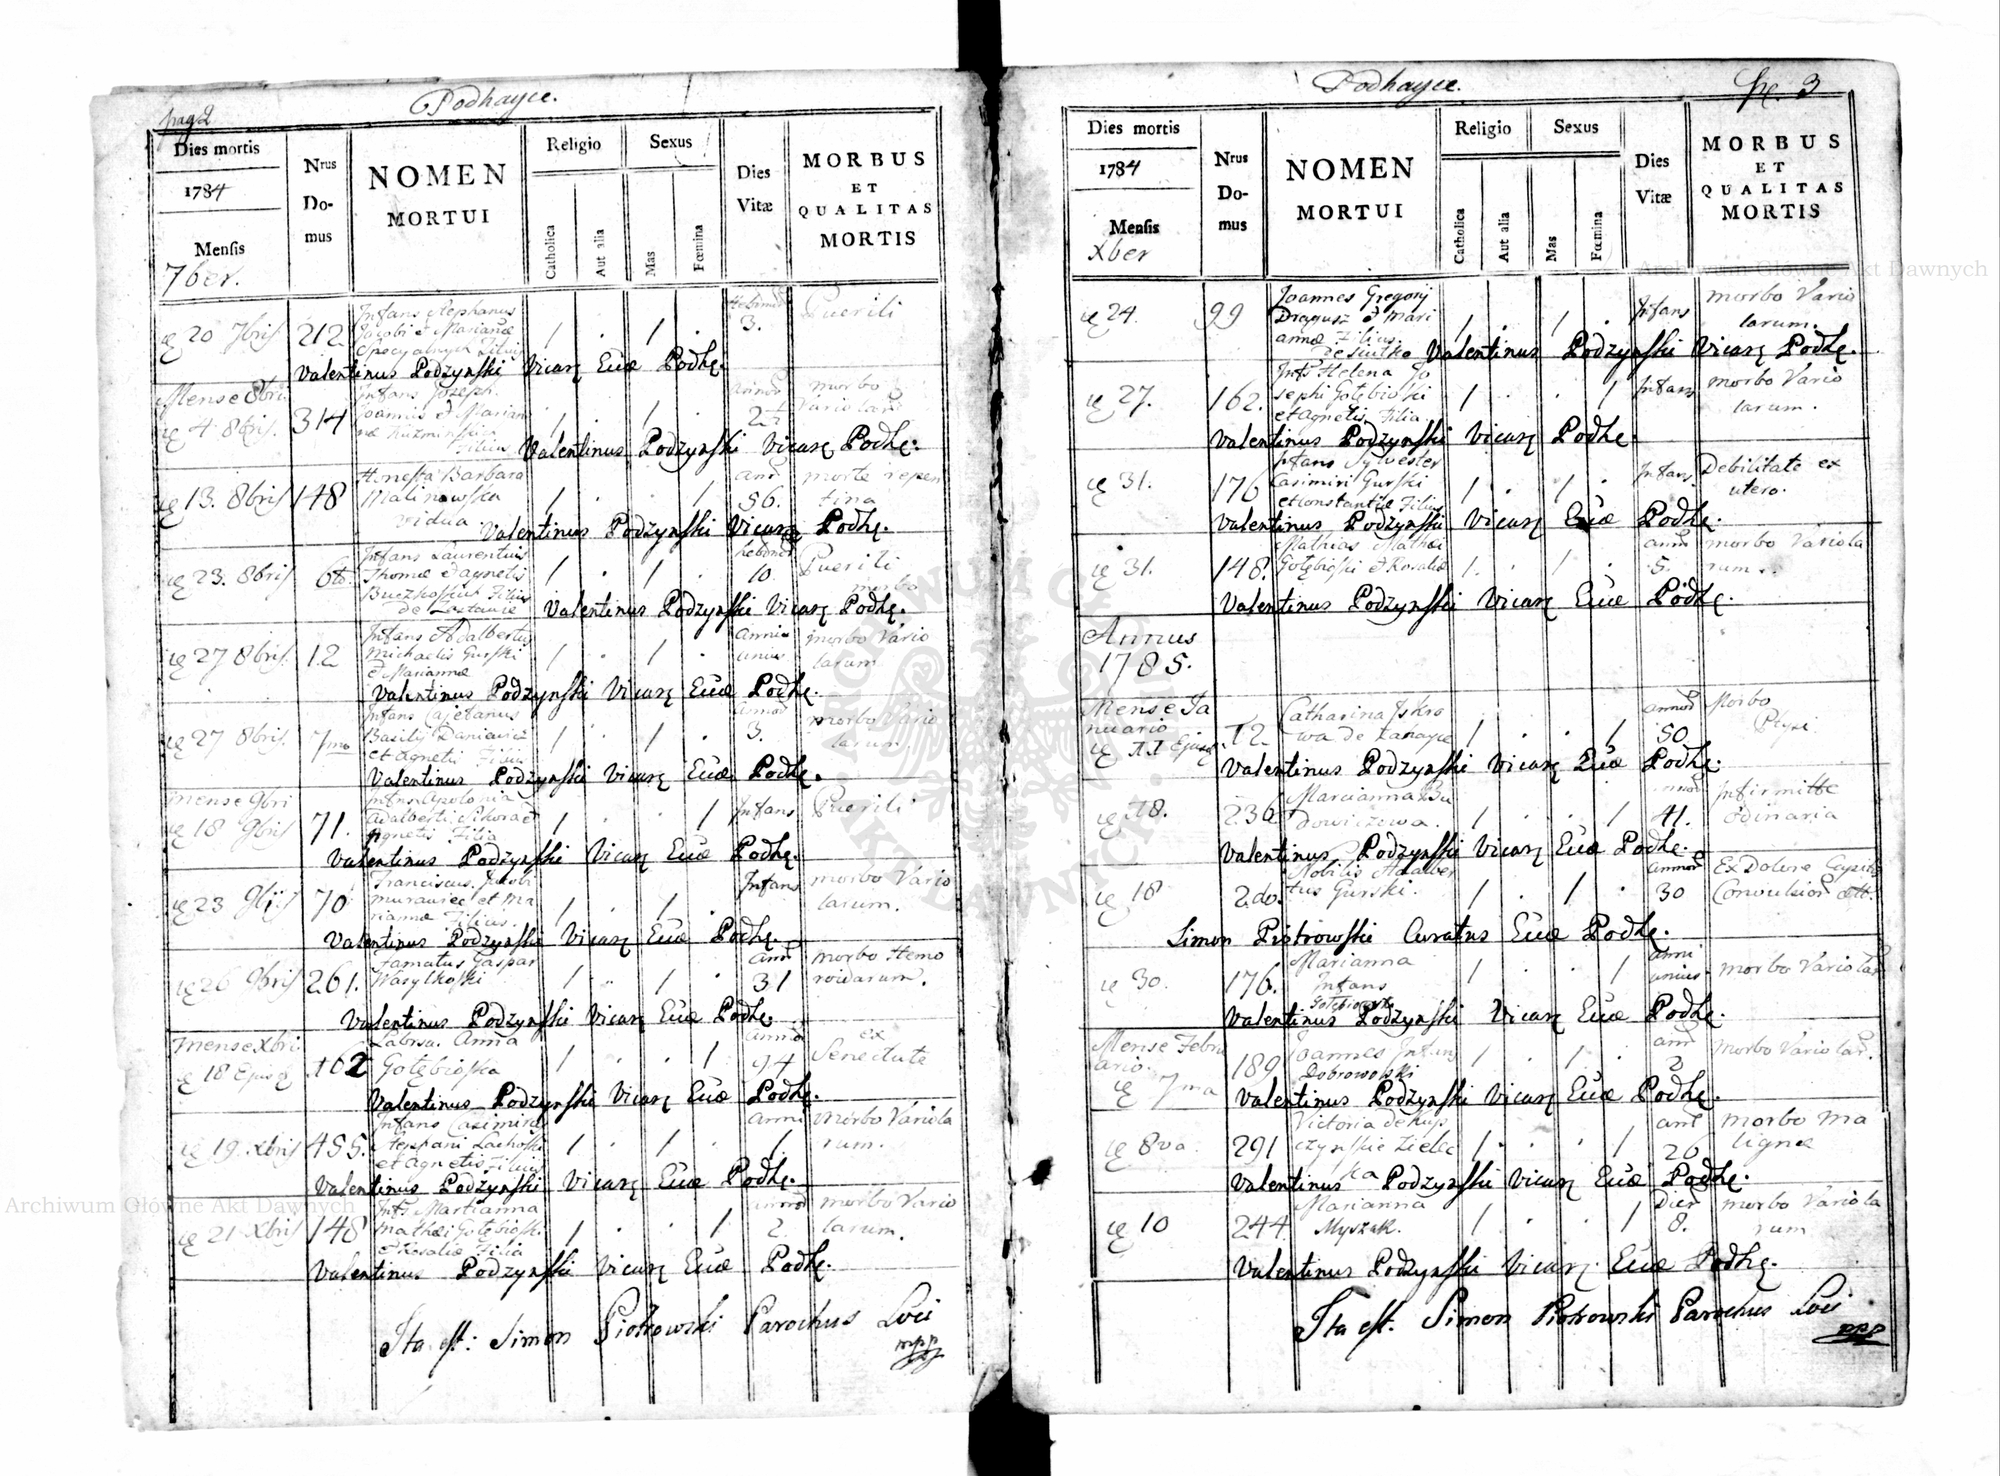 pag 2
Podhayce.
Dies mortis
1784
Mensis
7ber.
Nrus
Do-
mus
NOMEN
MORTUI
Religio
Catholica
Aut alia
Sexus
Mas
Fœmina
Dies
Vitæ
MORBUS
ET
QUALITAS
MORTIS
20 7bris 212 Infans Stephanus
Jacobi et Mariannæ
Filius 1 . 1 . 3. Puerili
Valentinus Podzynski Vicarę Eccæ Podhę.
Mense 8bri
4 8bris. 314 Infans Joseph.
Joannis et Marian
næ Kuzminski
Filius 1 . 1 . annor 2 morbo
Variolar
Valentinus Podzynski Vicarę Podhę.
13. 8bris 148 Honesta Barbara
Malinowska
vidua 1 . . 1 ann 56. morte repen
tina
Valentinus Podzynski Vicarę Podhę.
23. 8bris 6to. Infans Laurentius
Thomæ et Agnetis
Buczkoskich Filius
de 1 . 1 . hebdom 10. Puerili
morbo
Valentinus Podzynski Vicarę Podhę.
27 8bris. 12 Infans Adalbertus
Michaelis Gurski
et Mariannæ 1 . 1 . anni
unius morbo Vario
larum
Valentinus Podzynski Vicarę Eccæ Podhę.
27 8bris. 7mo Infans Cajetanus
Basilij Daniewicz
et Agnetis Filius 1 . 1 . annor 3. morbo Vario
larum
Valentinus Podzynski Vicarę Eccæ Podhę.
Mense 9bri
18 9bris 71. Infans Apolonia
Adalberti Sikora et
Agnetis Filia 1 . . 1 Infans Puerili
Valentinus Podzynski Vicarę Eccæ Podhę.
23 70 Franciscus Jacobi
Murawiec et Ma
riannæ Filius. 1 . 1 . Infans morbo Vario
larum.
Valentinus Podzynski Vicarę Eccæ Podhę.
26 9bris 261. Famatus Gaspar
Wasylkoski 1 . 1 . ann 31 morbo Hemo
roidarum.
Valentinus Podzynski Vicarę Eccæ Podhę.
Mense Xbri.
18 162 Labrsa. Anna
Gotębioska 1 . . 1 annor 94 ex
Senectute
Valentinus Podzynski Vicarę Eccæ Podhę.
19. Xbris 455. Infans Casimirus
Stephani Lachoski
et Agnetis Filius 1 . 1 . anni 1. morbo Variola
rum.
Valentinus Podzynski Vicarę Eccæ Podhę.
21 Xbris 148 Infs Martianna
Mathæi Gotębioski
et Rosaliæ Filia 1 . . 1 annor 2. morbo Vario
larum.
Valentinus Podzynski Vicarę Eccæ Podhę.
Ita est: Simon Piotrowski Parochus Loci
mpp
Podhayce.
pag. 3
Dies mortis
1784
Mensis
Xber
Nrus
Do-
mus
NOMEN
MORTUI
Religio
Catholica
Aut alia
Sexus
Mas
Fœmina
Dies
Vitæ
MORBUS
ET
QUALITAS
MORTIS
24. 99 Joannes Gregorij
Dragusz et Mari
annæ Filius.
de Siułko 1 . 1 . Infans morbo Vario
larum.
Valentinus Podzynski Vicarę Podhę.
27. 162. Infs Helena Jo
sephi Gotębioski
et Agnetis Filia 1 . . 1 Infans morbo Vario
larum.
Valentinus Podzynski Vicarę Podhę.
31. 176 Infans Sylvester
Casimiri Gurski
et Constantiæ Filius 1 . 1 . Infans Debilitate ex
utero.
Valentinus Podzynski Vicarę Eccæ Podhę.
31. 148. Mathias Mathæi
Gotębioski et Rosaliæ 1. . 1 . ann 5. morbo Variola
rum.
Valentinus Podzynski Vicarę Eccæ Podhę.
Annus
1785.
Mense Ja
nuario
11 12. Catharina Iskro
wa de Zahayce 1 . . 1 annor 50 Morbo
Ptysi
Valentinus Podzynski Vicarę Eccæ Podhę.
18. 236 Marcianna Bu
dowiczowa. 1 . . 1 annor 41. Infirmitte
ordinaria
Valentinus Podzynski Vicarę Eccæ Podhę.
18 2do. Nobilis Adalber
tus Gurski. 1 . 1 . annor 30 Ex Dolore Capitis
Convulsion
Simon Piotrowski Curatus Eccæ Podhę.
30. 176. Marianna
Infans
Gotębioska 1 . . 1 anni
unius morbo Variolar
Valentinus Podzynski Vicarę Eccæ Podhę.
Mense Febru
ario.
7ma 189 Joannes Infans
Dobrowolski 1 . 1 . ann 2 morbo Variolar.
Valentinus Podzynski Vicarę Eccæ Podhę.
8va 291 Victoria de Kup
czynskie Zielec
ka 1 . . 1 ann 26 morbo ma
lignæ
Valentinus Podzynski Vicarę Eccæ Podhę.
10 244 Marianna
Myszak. 1 . . 1 Dier 8. morbo Variola
rum
Valentinus Podzynski Vicarę Eccæ Podhę.
Ita est. Simon Piotrowski Parochus Loci
mpp
Archiwum Główne Akt Dawnych
Archiwum Główne Akt Dawnych
ARCHIWUM GŁÓWNE AKT DAWNYCH